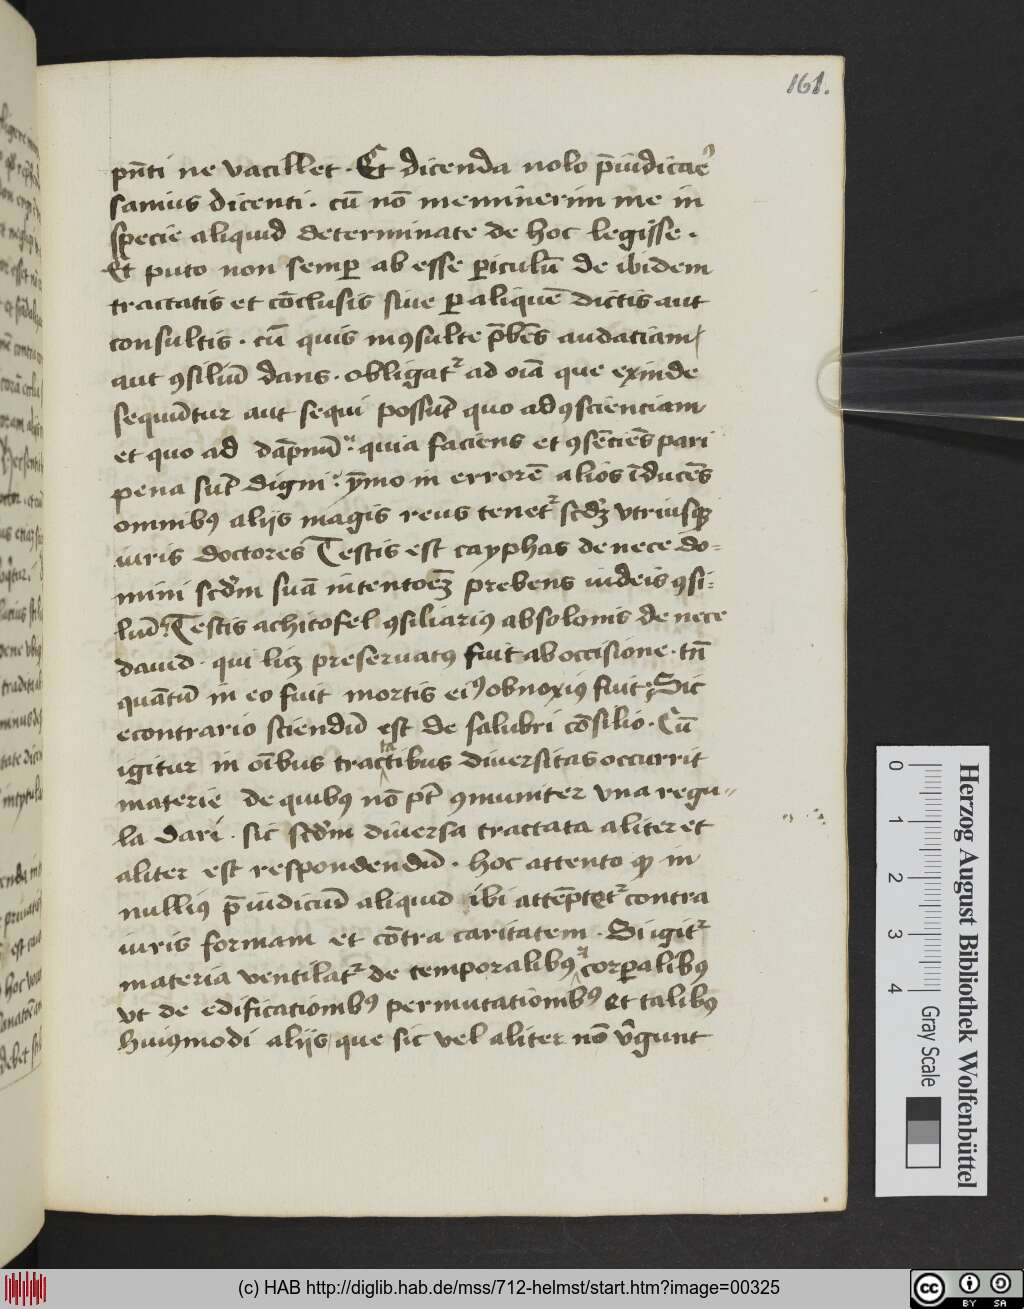 161.
pn̄ti ne vacillet · Et dicenda nolo p̄iudicaꝰ
sanius dicenti · cū nō meminerim me in
specie aliquid determinate de hoc legisse ·
Et puto non semꝑ ab esse ꝑiculū de ibidem
tractatis et cōclusis siue ꝑ aliquē dictis aut
consultis · cū quis incōsulte p̄bēs audaciam
aut ꝯsiliū dans · obligatᷣ ad oīa que exinde
sequūtur aut sequi possūt quo ad ꝯscienciam
et quo ad dāpnū · quia faciens et ꝯsēciēs pari
pena sūt digni · ymo in errorē alios īducēs
omnibꝰ alijs magis reus tenetᷣ scd̄ꝫ vtriusqꝫ
iuris doctores Testis est cayphas de nece do=
mini scd̄m suā intentoēꝫ prebens iudeis ꝯsi=
liuꝫ · Testis achitofel ꝯsiliariꝰ absolonis de nece
dauid · qui licꝫ preseruatꝰ fuit ab occisione · tn̄
quātū in eo fuit mortis eiꝰ obnoxiꝰ fuit · Sic
econtrario sciendū est de salubri cōsilio · Cū
igitur in oībus tractatibus diuersitas occurrit
materie de quibꝰ nō pt̄ ꝯmuniter vna regu=
la dari · sic scd̄m diuersa tractata aliter et
aliter est respondendū · hoc attento ꝙ in
nulliꝰ p̄iudiciū aliquid ibi attēptetᷣ contra
iuris formam et cōtra caritatem · Si igitᷣ
materia ventilatᷣ de temporalibꝰ ꝛ corꝑalibꝰ
vt de edificationibꝰ permutationibꝰ et talibꝰ
huiꝰmodi alijs que sic vel aliter nō v̄gunt
0 1 2 3 4
Gray Scale
Herzog August Bibliothek Wolfenbüttel
(c) HAB http://diglib.hab.de/mss/712-helmst/start.htm?image=00325
cc BY SA